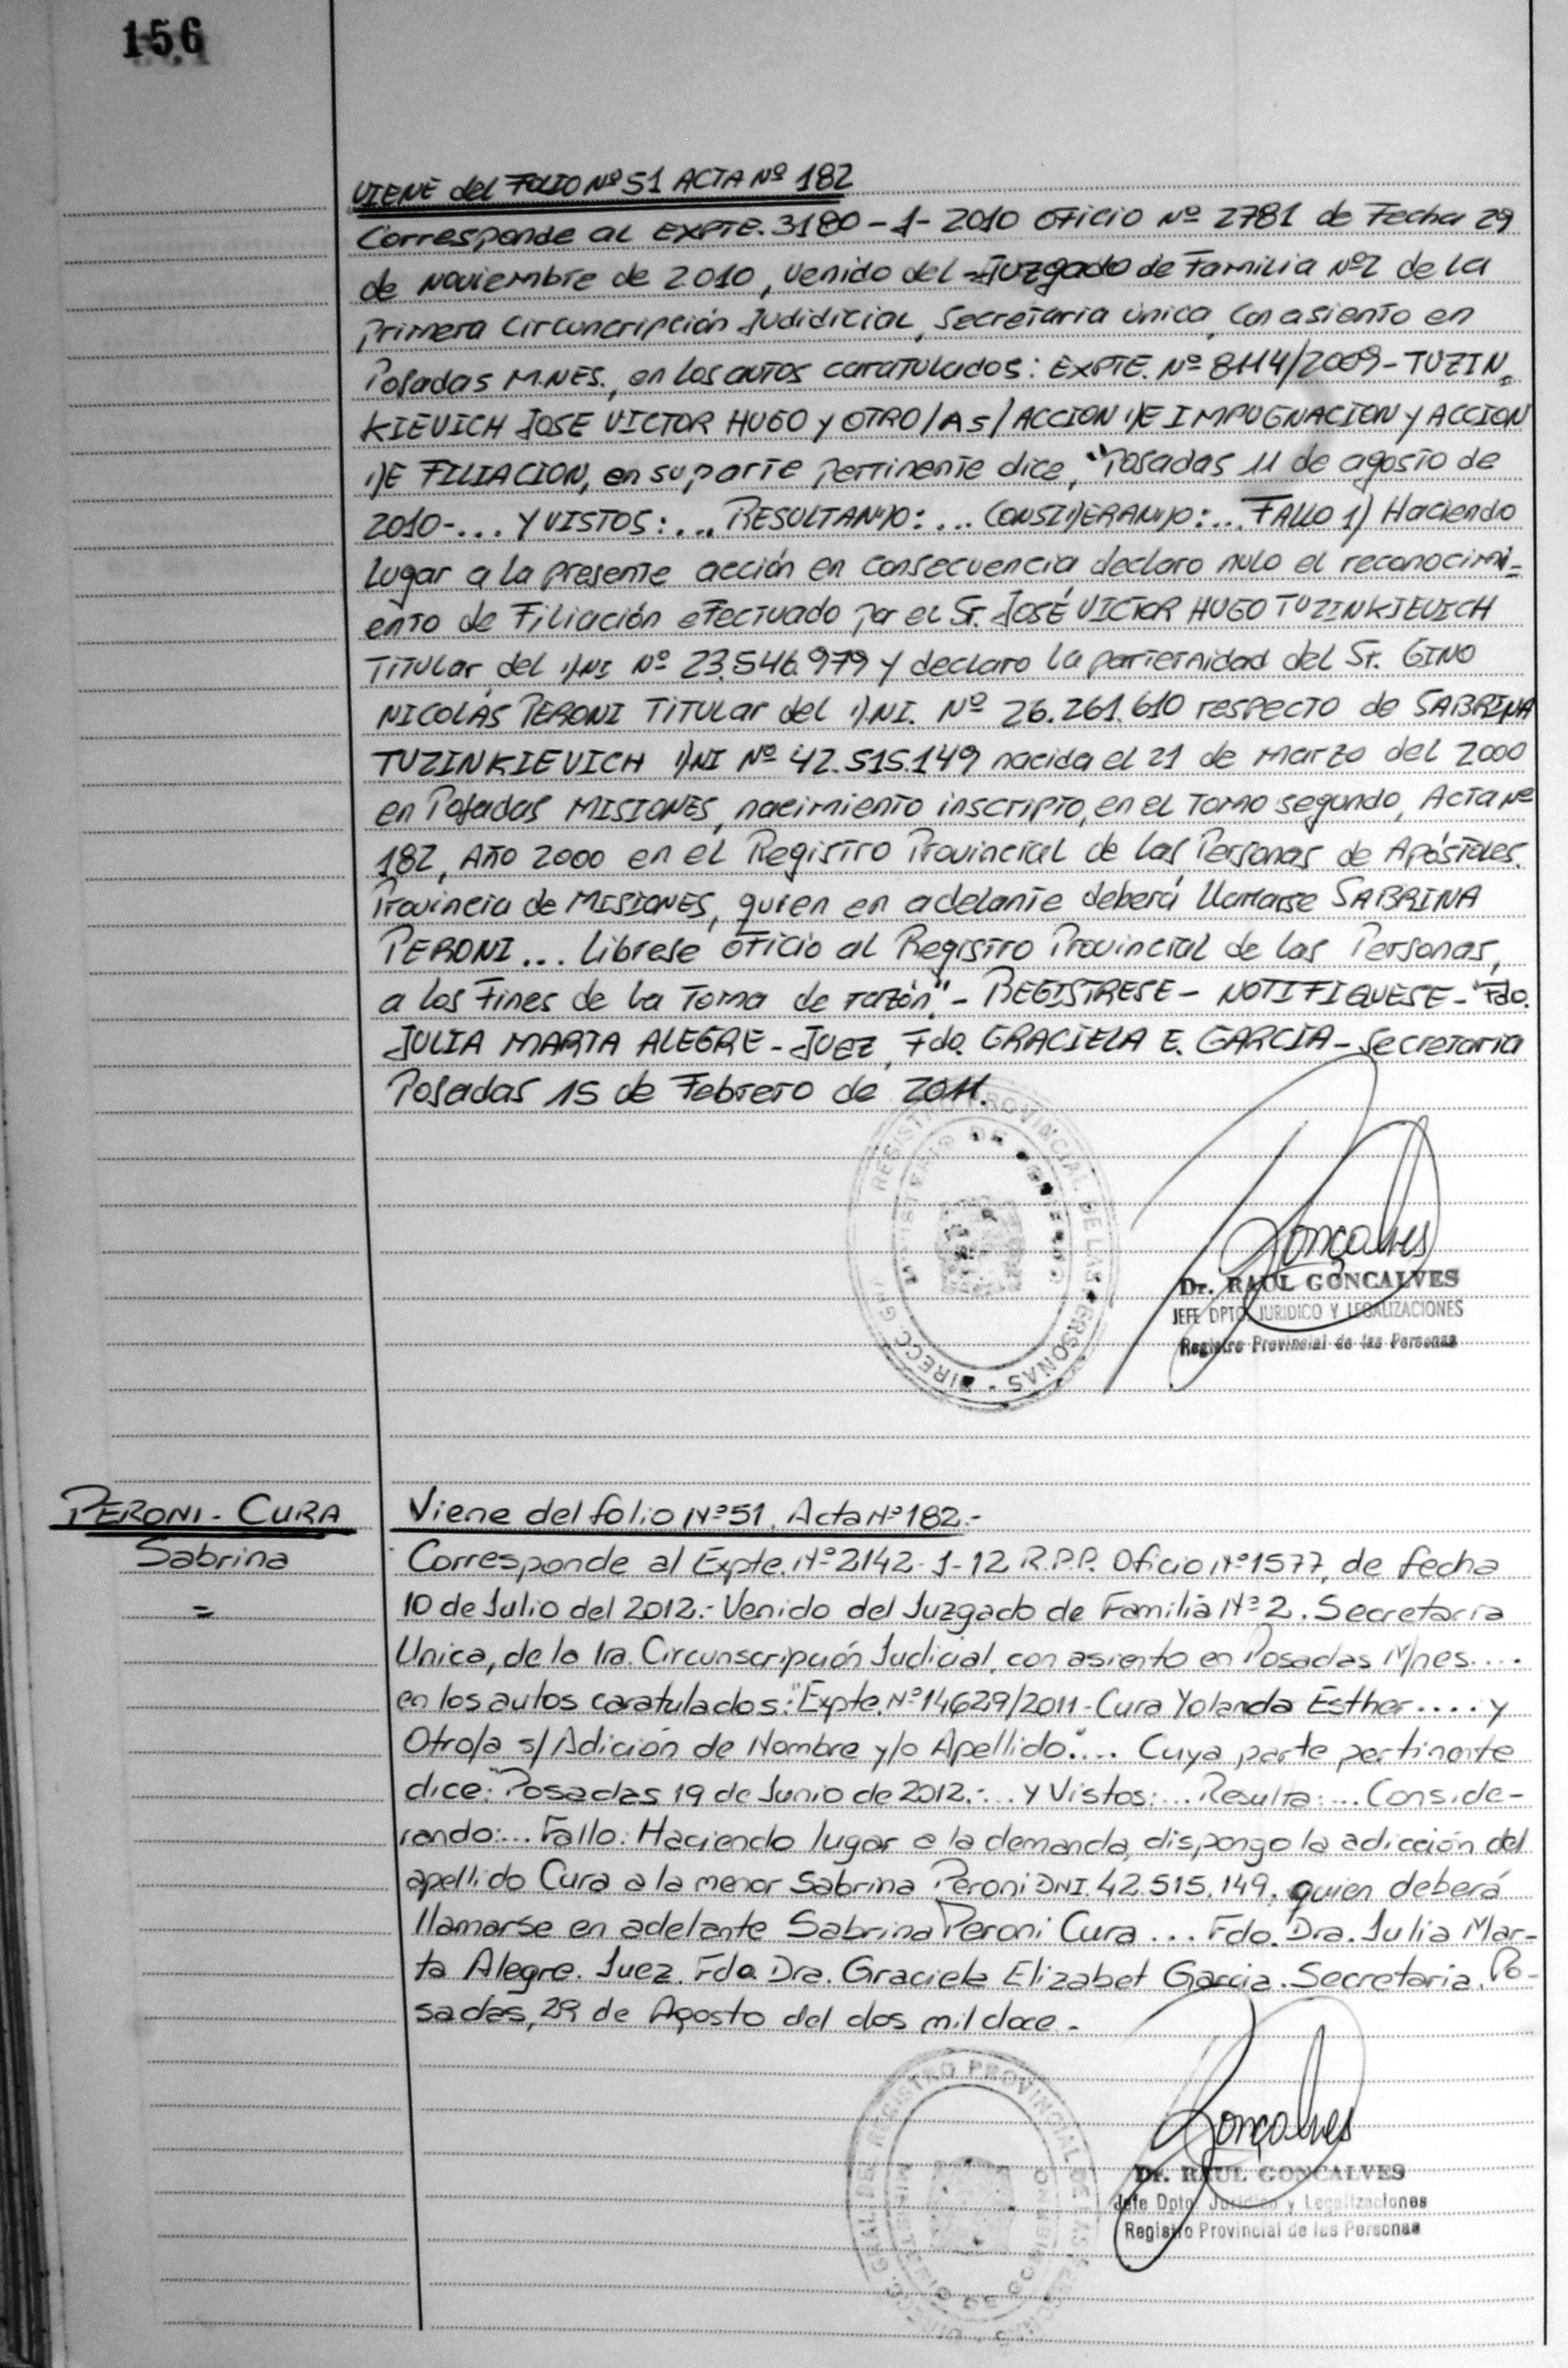 156
VIENE del FOLIO Nº 51 ACTA Nº 182
Corresponde al EXPTE. 3180-1-2010 OFICIO Nº 2781 de Fecha 29
de noviembre de 2010, venido del Juzgado de Familia Nº2 de la
Primera Circuncripción Judidicial, Secretaria única, con asiento en
Posadas M.NES., en los autos caratulados: EXPTE. Nº 8114/2009-TUZIN-
KIEVICH JOSE VICTOR HUGO y OTRO/A s/ ACCION DE IMPUGNACION y ACCION
DE FILIACION, en su parte pertinente dice, "Posadas 11 de agosto de
2010-... Y VISTOS:... RESULTANDO:... CONSIDERANDO:... FALLO 1) Haciendo
lugar a la presente acción en consecuencia declaro nulo el reconocimi-
ento de Filiación efectuado por el Sr. JOSÉ VICTOR HUGO TUZINKIEVICH
Titular del DNI Nº 23.546.979 y declaro la parternidad del Sr. GINO
NICOLÁS PERONI Titular del D.NI. Nº 26.261.610 respecto de SABRINA
TUZINKIEVICH DNI Nº 42.515.149 nacida el 21 de marzo del 2000
en Posadas MISIONES, nacimiento inscripto, en el Tomo segundo, Acta Nº
182, Año 2000 en el Registro Provincial de las Personas de Apóstoles.
Provincia de MISIONES, quien en adelante deberá llamarse SABRINA
PERONI... Librese oficio al Registro Provincial de las Personas,
a los Fines de la Toma de razón"- REGISTRESE- NOTIFIQUESE-"Fdo.
JULIA MARTA ALEGRE-JUEZ, Fdo. GRACIELA E. GARCIA-Secretaria
Posadas 15 de Febrero de 2011.
REGISTRO PROVINCIAL DE LAS PERSONAS - DIRECC. GRAL
MINISTERIO DE GOBIERNO
Gonçalves
Dr. RAUL GONCALVES
JEFE DPTO. JURIDICO Y LEGALIZACIONES
Registro Provincial de las Personas
PERONI - CURA
Sabrina
=
Viene del folio Nº51, Acta Nº182.-
Corresponde al Expte. Nº2142-1-12 R.P.P. Oficio Nº1577, de fecha
10 de Julio del 2012.- Venido del Juzgado de Familia Nº2. Secretaría
Unica, de la 1ra. Circunscripción Judicial, con asiento en Posadas M/nes....
en los autos caratulados: "Expte. Nº14629/2011-Cura Yolanda Esther.... y
Otro/a s/ Adición de Nombre y/o Apellido".... Cuya parte pertinente
dice: "Posadas 19 de Junio de 2012.-... Y Vistos:... Resulta:... Conside-
rando:... Fallo: Haciendo lugar a la demanda, dispongo la adicción del
apellido Cura a la menor Sabrina Peroni DNI. 42.515.149, quien deberá
llamarse en adelante Sabrina Peroni Cura... Fdo. Dra. Julia Mar-
ta Alegre. Juez. Fdo. Dra. Graciela Elizabet Garcia. Secretaria. Po-
sadas, 29 de Agosto del dos mil doce.-
REGISTRO PROVINCIAL DE LAS PERSONAS - DIRECC. GRAL DEL
MINISTERIO DE GOBIERNO
Gonçalves
Dr. RAUL GONCALVES
Jefe Dpto. Juridico y Legalizaciones
Registro Provincial de las Personas